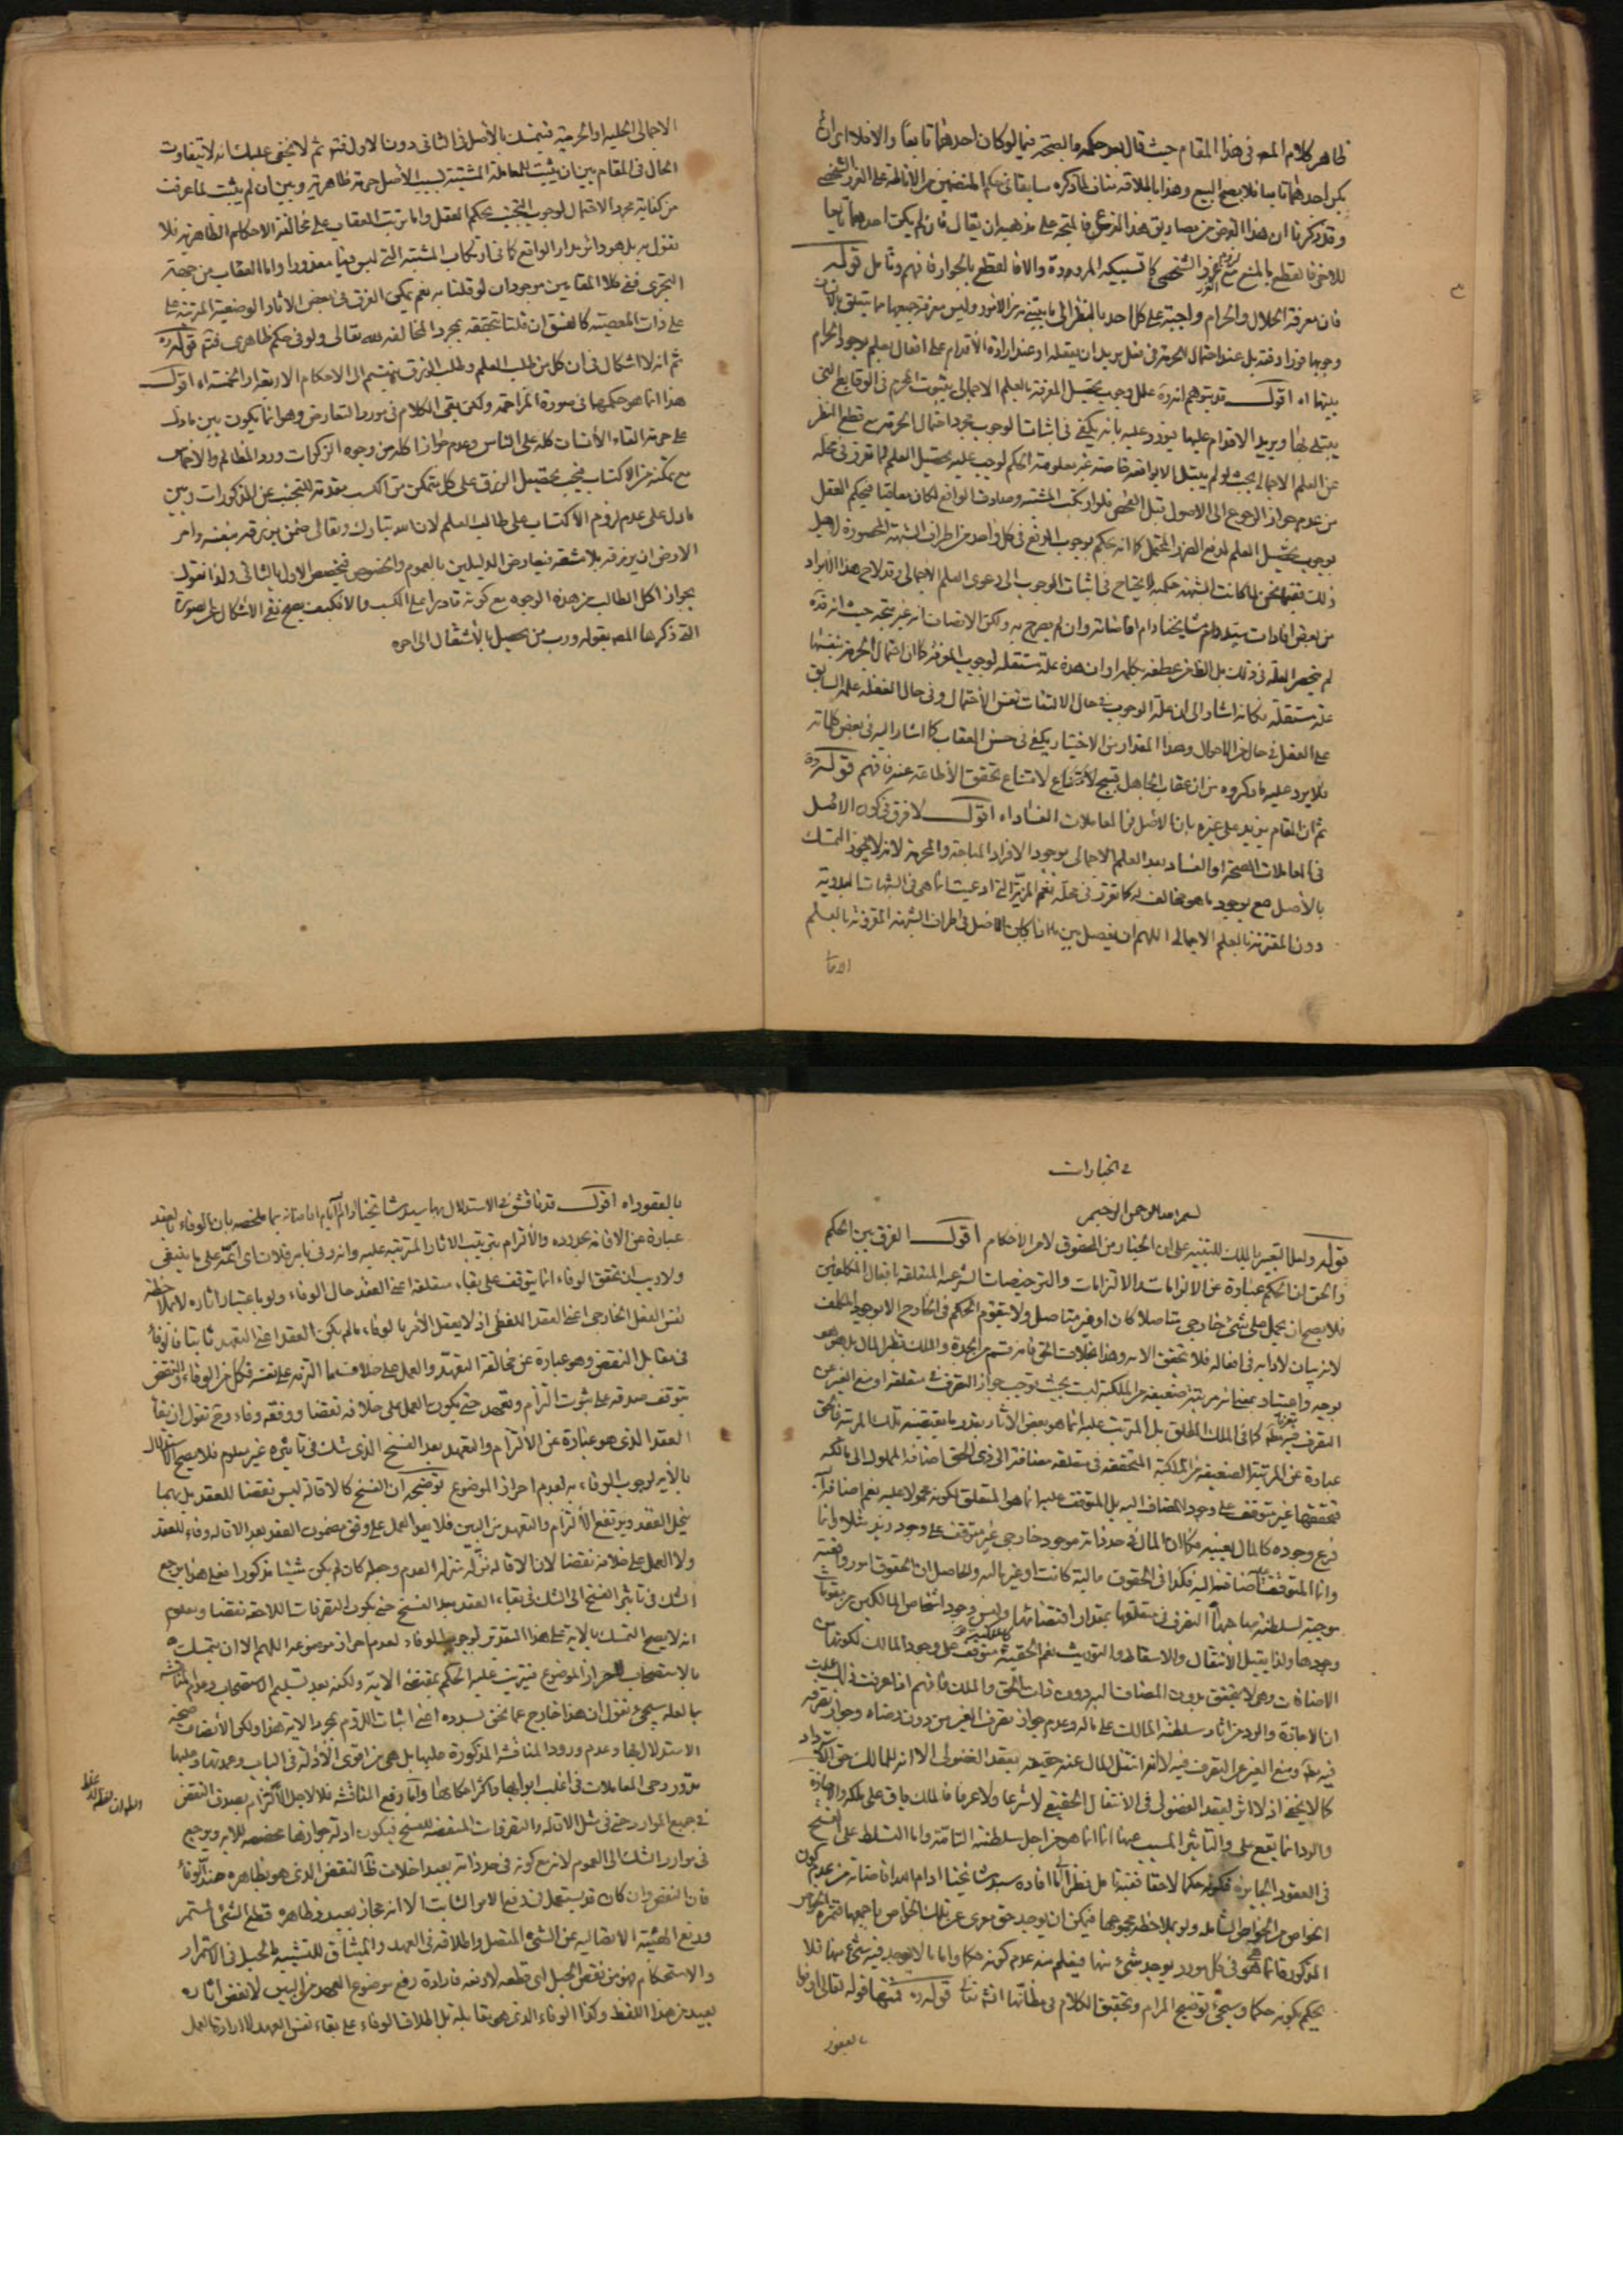 ظاهر كلام المص في هذا المقام حيث قال بعد حكمه بالصحة فيما لو كان احدهما تابعا والا فلا اى ان لم
يكن احدهما تابعا فلا يصح البيع وهذا باطلاقه مناف لما ذكره سابقا في الغرر الشخصي
وقد ذكرنا ان هذا الفرض من مصاديق هذا الفرع فالمتجه على مذهبه ان يقال فان لم يكن احدهما تابعا
للاخر فالقطع بالمنع مع لزوم الغرر الشخصي والا فالقطع بالجواز فافهم وتأمل قوله
فان معرفة الحلال والحرام واجبة على كل احد بالنظر الى ما يبتلي به من الامور وليس معرفة جميعها مما يتعلق بالانسان
وجوبها فورا دفعة بل عند احتمال الحرمة في فعل يريد ان يفعله او عند ارادة الأقدام على افعال يعلم بوجود الحرام
بينها اه اقول قد يتوهم انه ره علل وجوب تحصيل المعرفة بالعلم الاجمالي بثبوت المحرم في الوقايع التي
يبتلى بها ويريد الاقدام عليها فيورد عليه بانه يكفي في اثبات الوجوب مجرد احتمال الحرمة مع قطع النظر
عن العلم الاجمالي بحيث لو لم يبتل الا بواقعة خاصة غير معلومة الحكم لوجب عليه تحصيل العلم لما تقرر في محله
من عدم جواز الرجوع الى الاصول قبل الفحص فلو ارتكب المشتبه وصادف الواقع لكان معاقبا فيحكم العقل
بوجوب تحصيل العلم لدفع الضرر المحتمل كما انه يحكم بوجوب الدفع في كل واحد من اطراف الشبهة المحصورة لاجل
ذلك ففيما نحن لما كانت الشبهة حكمية لا يحتاج في اثبات الوجوب الى دعوى العلم الاجمالي وقد لاح هذا الايراد
من بعض افادات سيد مشايخنا دام افاضاته وان لم يصرح به ولكن الانصاف انه غير متجه حيث انه قده
لم يحصر العلة في ذلك بل الظاهر عطفه بكلمة او ان هذه علة مستقلة لوجوب المعرفة كما ان احتمال الحرمة بنفسها
علة مستقلة فكانه اشار الى ان علة الوجوب في حال الالتفات نفس الأحتمال وفي حال الغفلة علمه السابق
على الفعل في حال من الاحوال وهذا المقدار من الاختيار يكفي في حسن العقاب كما اشار اليه في بعض كلماته
فلا يرد عليه ما ذكروه من ان عقاب الجاهل قبيح لامتناع تحقق الأطاعة عنه فافهم قوله ره
ثم ان المقام يزيد على غيره بان الاصل في المعاملات الفساد اه اقول لا فرق في كون الاصل
في المعاملات الصحة او الفساد بعد العلم الاجمالي بوجود الافراد المباحة والمحرمة لانه لا يجوز التمسك
بالأصل مع وجود ما هو مخالف له كما تقرر في محله نعم المزية التي ادعيت انما هي في الشبهات البدوية
دون المقترنة بالعلم الاجمالي اللهم ان يفصل بين ما اذا كان الاصل في اطراف الشبهة المقرونة بالعلم
الاجمالي الحلية او الحرمة فيتمسك بالأصل في الثاني دون الاول فتدبر ثم لا يخفى عليك انه لا يتفاوت
الحال في المقام بين ان يثبت للمعاملة المشتبهة بسبب الأصل حرمة ظاهرية وبين ان لم يثبت لما عرفت
من كفاية مجرد الاحتمال لوجوب التجنب بحكم العقل واما ترتب العقاب على مخالفة الاحكام الظاهرية فلا
نقول به بل هو دائر مدار الواقع كما في ارتكاب المشتبه التي ليس فيها معذورا واما العقاب من جهة
التجري ففي كلا المقامين موجود ان لو قلنا به نعم يمكن الفرق في بعض الاثار الوضعية المترتبة على
على ذات المعصية كالفسق ان قلنا بتحققه بمجرد المخالفة لله تعالى ولو في حكم ظاهري فتدبر قوله ره
ثم انه لا اشكال في ان كل من طلب العلم وطلب الرزق ينقسم الى الاحكام الاربعة او الخمسة اه اقول
هذا انما هو حكمهما في صورة المزاحمة ولكن يبقى الكلام في مورد التعارض وهو انما يكون بين ما دل
على حرمة القاء الأنسان كله على الناس وعدم جواز اكله من وجوه الزكوات ورد المظالم والاخماس
مع تمكنه من الاكتساب فيجب تحصيل الرزق على كل متمكن من الكسب مقدمة للتجنب عن المذكورات وبين
ما دل على عدم لزوم الأكتساب على طالب العلم لان الله تبارك وتعالى ضمن برزقه بنفسه وامر
الارض ان يرزقه بلا مشقة فيعارض الدليلين بالعموم والخصوص فيخصص الاول بالثاني ولذا نقول
بجواز اكل الطالب من هذه الوجوه مع كونه قادرا على الكسب والا فكيف يصح نفي الاشكال على صورة
التي ذكرها المص بقوله ورب من يحصل بالأشتغال الى اخره
في الخيارات
بسم الله الرحمن الرحيم
قوله ولعل التعبير بالملك للتنبيه على ان الخيار من الحقوق لا من الأحكام اقول الفرق بين الحكم
والحق ان الحكم عبارة عن الالزامات والالتزامات والترخيصات الشرعية المتعلقة بافعال المكلفين
فلا يصح ان يحمل على شيء خارجي متاصلا كان او غير متاصل ولا يتقوم الحكم في الخارج الا بوجود المكلف
بوجه واعتبار بمعنى انه مرتبة ضعيفة من الملكية ليست بحيث توجب جواز التصرف في متعلقه او منع الغير عن
التصرف فيه كما في الملك المطلق بل المترتب عليه انما هو بعض الاثار بقدر ما يقتضيه تلك المرتبة فالحق
عبارة عن المرتبة الضعيفة من الملكية المتحققة في متعلقه مضافة الى ذي الحق اضافة المملوك الى مالكه
فتحققها غير متوقف على وجود المضاف اليه بل المتوقف عليه انما هو المتعلق لكونه محمولا عليه نعم اضافة
فرع وجوده كالمال بعينه فكما ان المال في حد ذاته موجود خارجي غير متوقف على وجود زيد مثلا وانما
وانما المتوقف عليه اضافته اليه فكذا في الحقوق مالية كانت او غير مالية والحاصل ان الحقوق امور واقعية
موجبة لسلطنة صاحبها التصرف في متعلقها بمقدار اقتضائها وليس وجود اشخاص المالكين من مقومات
وجودها ولذا يقبل الأنتقال والاسقاط والتوريث نعم الحقية متوقفة على وجود المالك لكونها من
الاضافات وهي لا يتحقق بدون المضاف اليه دون ذات الحق والملك فافهم اذا عرفت ذلك علمت
ان الاجازة والرد من اثار سلطنة المالك على ماله وعدم جواز تصرف الغير من دون رضاه وجواز تصرفه
فيه ومنع الغير عن التصرف فيه لا انه انتقل المال عنه حقيقة بعقد الفضولي الا انه للمالك حق الاسترداد
كما لا يخفى اذ لا اثر لعقد الفضولي في الأنتقال الحقيقي لا شرعا ولا عرفا فالملك باق على ملكه والاجازة
والرد انما يقع على والتأثير المسبب عنها انما هو من اجل سلطنته التامة واما التسلط على الفسخ
في العقود الجايزة فكونه حكما لا حقا ففيه تامل نظرا الى ما افاده سيد مشايخنا ادام الله افاضاته من عدم كون
الخواص من الخواص الشاملة ولو بملاحظة مجموعها فيمكن ان يوجد حق موى عن تلك الخواص باجمعها فثمرة الخواص
المذكورة انما هي في كل مورد يوجد شيء منها فيعلم منه عدم كونه حكما واما ما لا يوجد فيه شيء منها فلا
يحكم بكونه حكما وسيجيء توضيح المرام وتحقيق الكلام في مظانها انشاء الله تعالى قوله ره فمنها قوله تعالى اوفوا
بالعقود
بالعقود اه اقول قد ناقش في الاستدلال بها سيد مشايخنا دام ايام افاضاته بما ملخصه بان الوفاء بالعهد
عبارة عن الاقامة بحدوده والألتزام بترتيب الاثار المترتبة عليه وانه وفى بامر فلان اى اتمه على ما ينبغي
ولا ريب ان تحقق الوفاء انما يتوقف على بقاء متعلقه اعني العقد حال الوفاء ولو باعتبار اثاره لا بملاحظة
نفس الفعل الخارجي اعني العقد اللفظي اذ لا يعقل الأمر بالوفاء ما لم يكن العقد اعني التعهد ثابتا فالوفاء
في مقابل النقض وهو عبارة عن مخالفة التعهد والعمل على خلاف ما التزمه على نفسه فكل من الوفاء والنقض
يتوقف صدقه على ثبوت التزام وتعهد حتى يكون العمل على خلافه نقضا ووفقه وفاء وح نقول ان بقاء
العقد الذي هو عبارة عن الألتزام والتعهد بعد الفسخ الذي شك في تاثيره غير معلوم فلا يصح الاستدلال
بالأية لوجوب الوفاء به لعدم احراز الموضوع توضيحه ان الفسخ كالاقالة ليس نقضا للعقد بل بهما
ينحل العقد ويرتفع الألتزام والتعهد من البين فلا يعد العمل على وفق مضمون العقد بعد الاقالة وفاء للعقد
ولا العمل على خلافه نقضا لان الاقالة نزله منزلة العدم وجعله كان لم يكن شيئا مذكورا فعلى هذا يرجع
الشك في تاثير الفسخ الى الشك في بقاء العقد بعد الفسخ حتى يكون التصرفات اللاحقة نقضا ومعلوم
انه لا يصح التمسك بالاية على هذا التقدير لوجوب الوفاء لعدم احراز موضوعه اللهم الا ان يتمسك
بالاستصحاب لاحراز الموضوع فيترتب عليه الحكم بمقتضى الاية ولكنه بعد تسليم الاستصحاب وعدم المناقشة
بما لعله سيجيء نقول ان هذا خارج عما نحن بصدده اعني اثبات اللزوم بمجرد الاية هذا ولكن الأنصاف صحة
الاستدلال بها وعدم ورود المناقشة المذكورة عليها بل هي من اقوى الأدلة في الباب وعمدتها وعليها
تدور رحى المعاملات في اغلب ابوابها واكثر احكامها واما دفع المناقشة فلا لاجل الألتزام بصدق النقض
في جميع الموارد حتى في مثل الاقالة والتصرفات المتعقبة للفسخ فيكون ادلة جوازها مخصصة للاية ويرجع
في موارد الشك الى العموم لانه مع كونه في حد ذاته بعيد اخلاف ظاهر النقض الذي هو بظاهره ضد الوفاء
فان النقض وان كان قد يستعمل في رفع الامر الثابت الا انه مجاز بعيد وظاهره قطع الشيء المستمر
ورفع الهيئة الاتصالية عن الشيء المتصل واطلاقه في العهد والميثاق للتشبيه بالحبل في الاستمرار
والاستحكام فهو من نقض الحبل اى قطعه لا رفعه فارادة رفع موضوع العهد من البين لا نقض اثاره
بعيد من هذا اللفظ وكذا الوفاء الذي هو مقابله بل اطلاق الوفاء على بقاء نفس العهد لا ارادة العمل